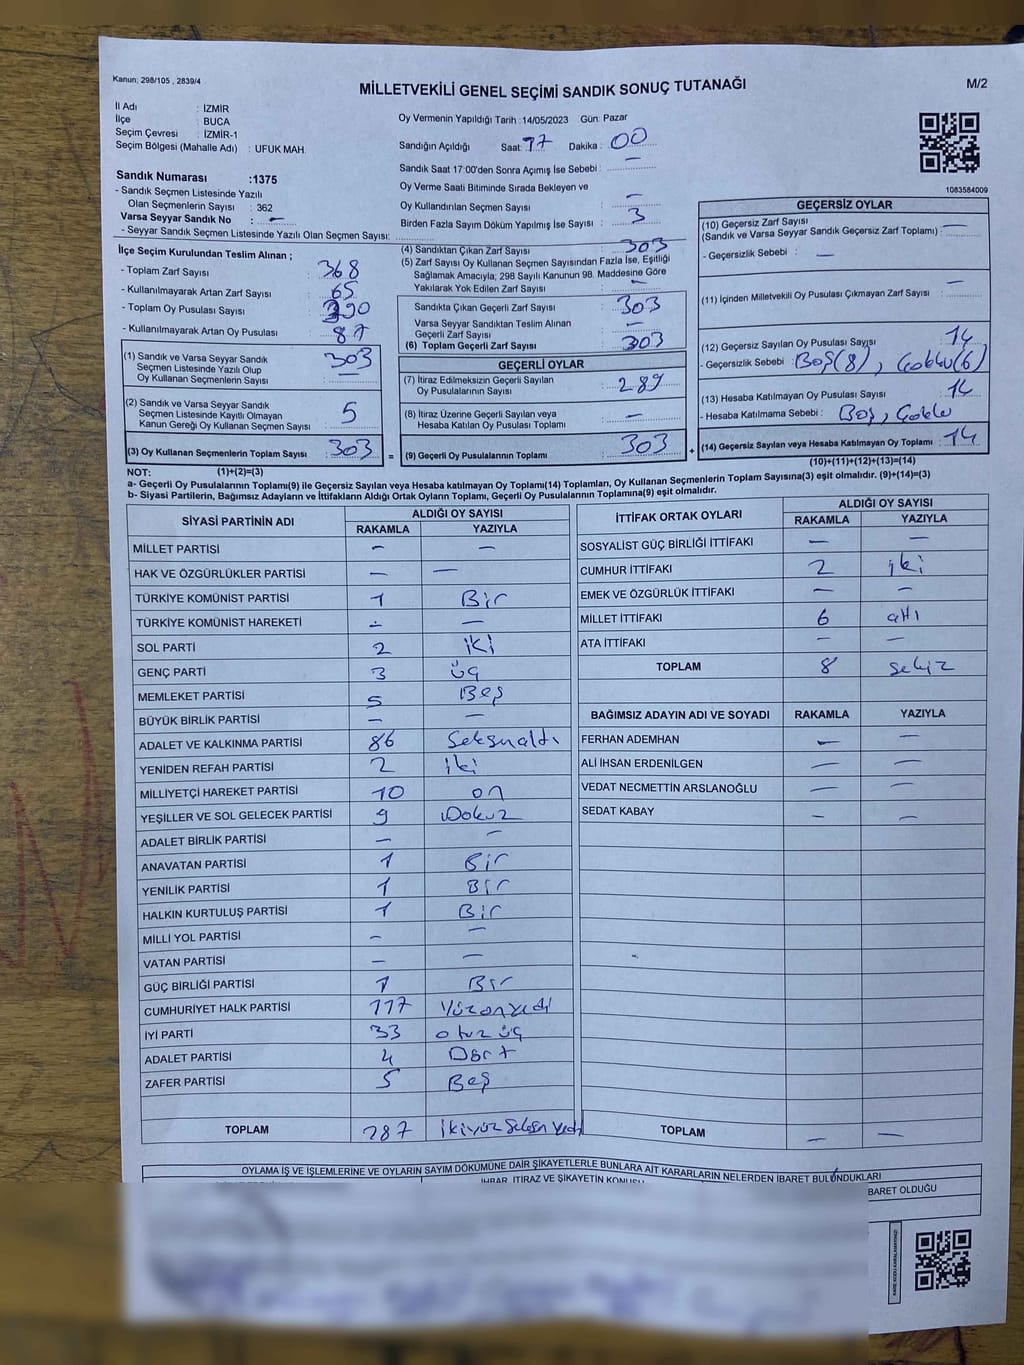 Kanun; 298/105 , 2839/4
MİLLETVEKİLİ GENEL SEÇİMİ SANDIK SONUÇ TUTANAĞI
M/2
İl Adı : İZMİR
İlçe : BUCA
Seçim Çevresi : İZMİR-1
Seçim Bölgesi (Mahalle Adı) : UFUK MAH.
Oy Vermenin Yapıldığı Tarih :14/05/2023 Gün: Pazar
Sandığın Açıldığı Saat: 17 Dakika : 00
Sandık Saat 17:00'den Sonra Açımış İse Sebebi : —
Oy Verme Saati Bitiminde Sırada Bekleyen ve
Oy Kullandırılan Seçmen Sayısı : —
Birden Fazla Sayım Döküm Yapılmış İse Sayısı : 3
1083584009
Sandık Numarası :1375
- Sandık Seçmen Listesinde Yazılı
Olan Seçmenlerin Sayısı : 362
Varsa Seyyar Sandık No : —
- Seyyar Sandık Seçmen Listesinde Yazılı Olan Seçmen Sayısı:
İlçe Seçim Kurulundan Teslim Alınan ;
- Toplam Zarf Sayısı : 368
- Kullanılmayarak Artan Zarf Sayısı : 65
- Toplam Oy Pusulası Sayısı : 390
- Kullanılmayarak Artan Oy Pusulası : 87
(1) Sandık ve Varsa Seyyar Sandık
Seçmen Listesinde Yazılı Olup
Oy Kullanan Seçmenlerin Sayısı : 303
(2) Sandık ve Varsa Seyyar Sandık
Seçmen Listesinde Kayıtlı Olmayan
Kanun Gereği Oy Kullanan Seçmen Sayısı : 5
(3) Oy Kullanan Seçmenlerin Toplam Sayısı : 303
(4) Sandıktan Çıkan Zarf Sayısı : 303
(5) Zarf Sayısı Oy Kullanan Seçmen Sayısından Fazla İse, Eşitliği
Sağlamak Amacıyla, 298 Sayılı Kanunun 98. Maddesine Göre
Yakılarak Yok Edilen Zarf Sayısı : —
Sandıkta Çıkan Geçerli Zarf Sayısı : 303
Varsa Seyyar Sandıktan Teslim Alınan
Geçerli Zarf Sayısı : —
(6) Toplam Geçerli Zarf Sayısı : 303
GEÇERLİ OYLAR
(7) İtiraz Edilmeksizin Geçerli Sayılan
Oy Pusulalarının Sayısı : 289
(8) İtiraz Üzerine Geçerli Sayılan veya
Hesaba Katılan Oy Pusulası Toplamı : —
= (9) Geçerli Oy Pusulalarının Toplamı : 303 +
GEÇERSİZ OYLAR
(10) Geçersiz Zarf Sayısı
(Sandık ve Varsa Seyyar Sandık Geçersiz Zarf Toplamı) : —
- Geçersizlik Sebebi : —
(11) İçinden Milletvekili Oy Pusulası Çıkmayan Zarf Sayısı : —
(12) Geçersiz Sayılan Oy Pusulası Sayısı : 14
- Geçersizlik Sebebi : Boş(8), Çoklu(6)
(13) Hesaba Katılmayan Oy Pusulası Sayısı : 14
- Hesaba Katılmama Sebebi : Boş, Çoklu
(14) Geçersiz Sayılan veya Hesaba Katılmayan Oy Toplamı : 14
NOT: (1)+(2)=(3)
(10)+(11)+(12)+(13)=(14)
a- Geçerli Oy Pusulalarının Toplamı(9) ile Geçersiz Sayılan veya Hesaba katılmayan Oy Toplamı(14) Toplamları, Oy Kullanan Seçmenlerin Toplam Sayısına(3) eşit olmalıdır. (9)+(14)=(3)
b- Siyasi Partilerin, Bağımsız Adayların ve İttifakların Aldığı Ortak Oyların Toplamı, Geçerli Oy Pusulalarının Toplamına(9) eşit olmalıdır.
SİYASİ PARTİNİN ADI ALDIĞI OY SAYISI
RAKAMLA YAZIYLA
MİLLET PARTİSİ — —
HAK VE ÖZGÜRLÜKLER PARTİSİ — —
TÜRKİYE KOMÜNİST PARTİSİ 1 Bir
TÜRKİYE KOMÜNİST HAREKETİ — —
SOL PARTİ 2 iki
GENÇ PARTİ 3 üç
MEMLEKET PARTİSİ 5 Beş
BÜYÜK BİRLİK PARTİSİ — —
ADALET VE KALKINMA PARTİSİ 86 Seksnaltı
YENİDEN REFAH PARTİSİ 2 iki
MİLLİYETÇİ HAREKET PARTİSİ 10 on
YEŞİLLER VE SOL GELECEK PARTİSİ 9 Dokuz
ADALET BİRLİK PARTİSİ — —
ANAVATAN PARTİSİ 1 Bir
YENİLİK PARTİSİ 1 Bir
HALKIN KURTULUŞ PARTİSİ 1 Bir
MİLLİ YOL PARTİSİ — —
VATAN PARTİSİ — —
GÜÇ BİRLİĞİ PARTİSİ 1 Bir
CUMHURİYET HALK PARTİSİ 117 Yüzonyedi
İYİ PARTİ 33 otuz üç
ADALET PARTİSİ 4 Dört
ZAFER PARTİSİ 5 Beş
TOPLAM 287 ikiyüz Seksen Yedi
İTTİFAK ORTAK OYLARI ALDIĞI OY SAYISI
RAKAMLA YAZIYLA
SOSYALİST GÜÇ BİRLİĞİ İTTİFAKI — —
CUMHUR İTTİFAKI 2 iki
EMEK VE ÖZGÜRLÜK İTTİFAKI — —
MİLLET İTTİFAKI 6 altı
ATA İTTİFAKI — —
TOPLAM 8 sekiz
BAĞIMSIZ ADAYIN ADI VE SOYADI RAKAMLA YAZIYLA
FERHAN ADEMHAN — —
ALİ İHSAN ERDENİLGEN — —
VEDAT NECMETTİN ARSLANOĞLU — —
SEDAT KABAY — —
TOPLAM — —
OYLAMA İŞ VE İŞLEMLERİNE VE OYLARIN SAYIM DÖKÜMÜNE DAİR ŞİKAYETLERLE BUNLARA AİT KARARLARIN NELERDEN İBARET BULUNDUKLARI
İHBAR, İTİRAZ VE ŞİKAYETİN KONUSU
İBARET OLDUĞU